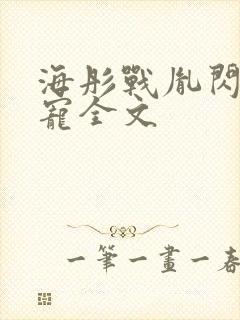 海彤戰胤閃
寵全文
一筆一畫一春